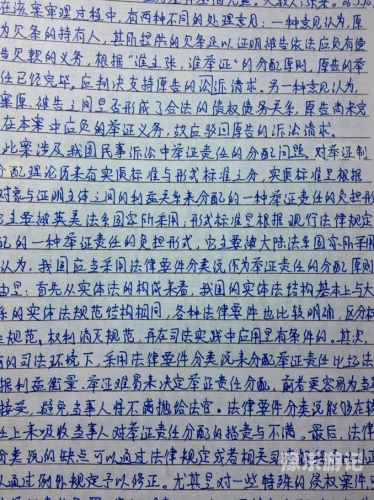 在该案审理过程中,有两种不同的处理意见:一种意见认为,原
为欠条的持有人,其所提供的欠条足以证明被告依法应负有偿
告欠款的义务,根据“谁主张,谁举证”的分配原则,原告的举
任已经完毕,应判决支持原告的诉讼请求。另一种意见认为,
案原、被告之间是否形成了合法的债权债务关系,原告尚未完
在本案中应负的举证义务,故应驳回原告的诉讼请求。
此案涉及我国民事诉讼中举证责任的分配问题。对举证制
分配理论历来有实质标准与形式标准之分,实质标准是根据
对象与证明主体之间的利益关系来分配的一种举证责任的负担形
它主要被英美法系国家所采用;形式标准是根据现行法律规定
配的一种举证责任的负担形式,它主要被大陆法系国家所采用
认为,我国应当采用法律要件分类说作为举证责任的分配原则
由是:首先从实体法的构成来看,我国的实体法结构基本上与大
系的实体法规范结构相同,各种法律要件也比较明确,区分权
生规范、权利消灭规范,并在司法实践中应用是有条件的。其次,
的司法环境下,采用法律要件分类说来分配举证责任比起法
据利益衡量、举证难易来决定举证责任分配,前者更容易为当事
接受,避免当事人将不满抛给法官。法律要件分类说能够在较
性上来吸收当事人对举证责任分配的指责与不满。最后,法律
分类说的缺点可以通过法律规定或者相关司
以通过例外规定予以修正。尤其是对一些特殊的侵权案件,可
豫乐游记